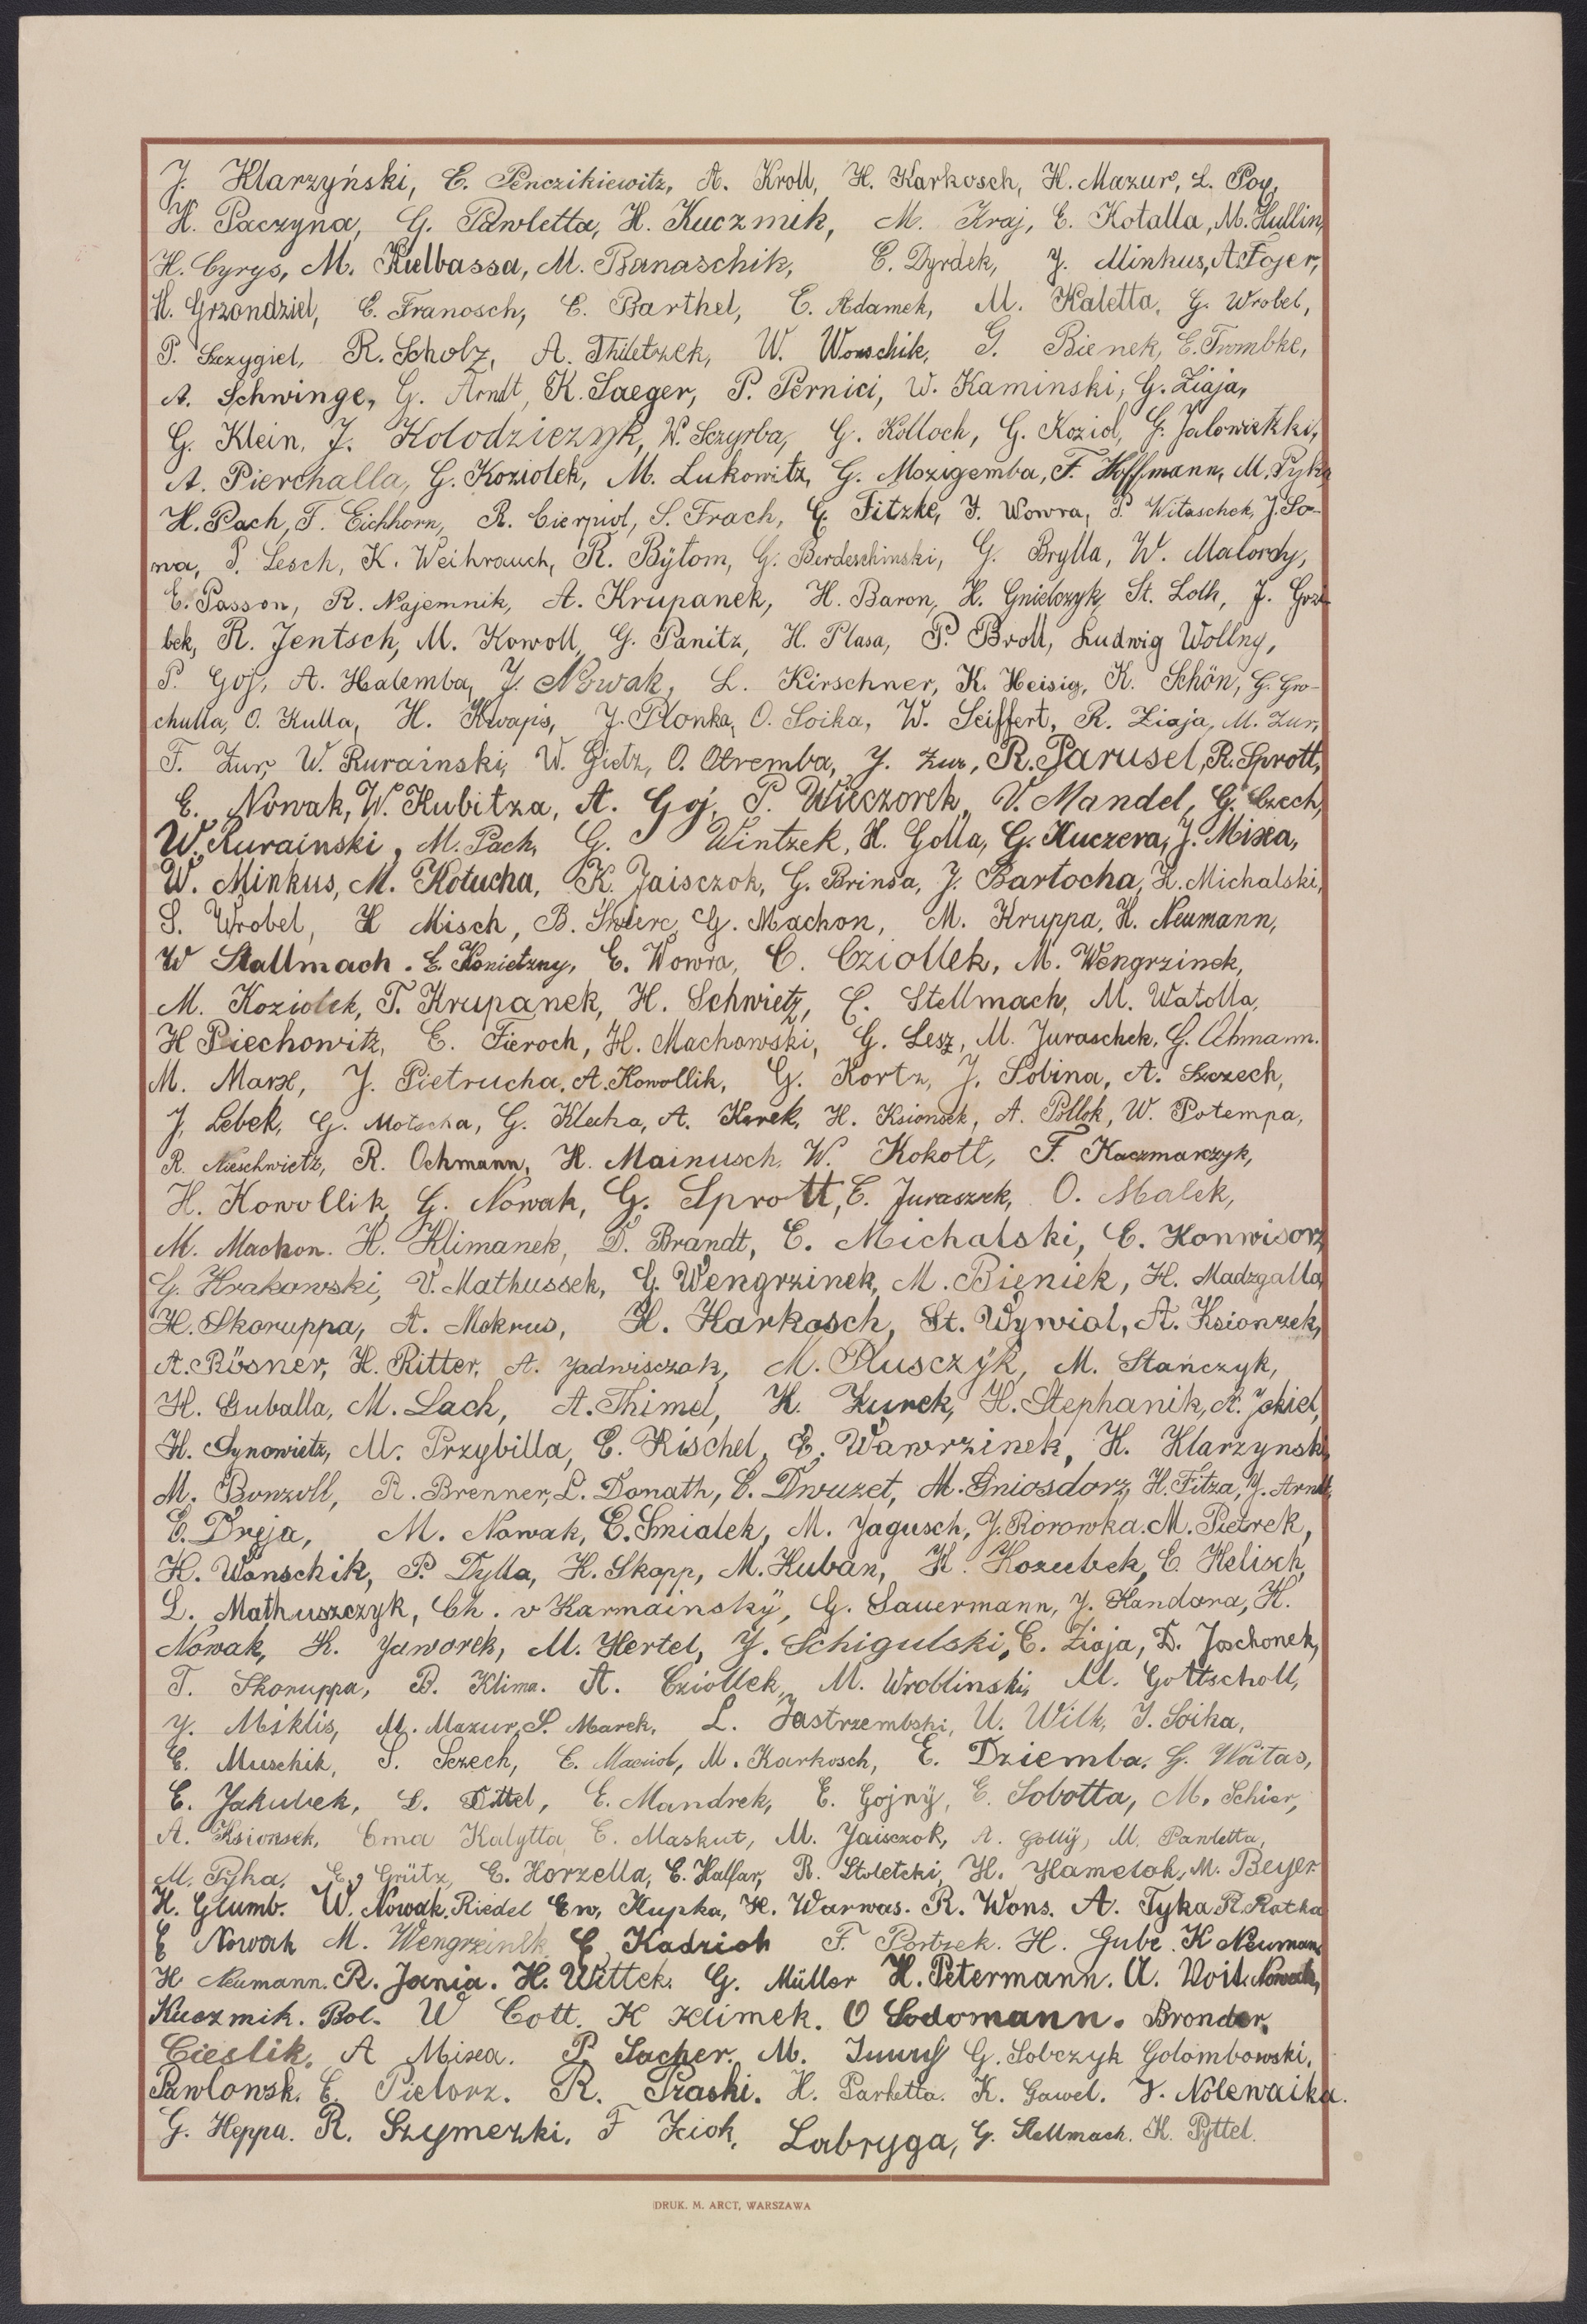 J. Klarzyński, E. Penczikiewitz, A. Kroll, H. Karkosch, H. Mazur, L. Poy,
H. Paczyna, G. Pawletta, H. Kuczmik, M. Kraj, E. Kotalla, M. Hullin,
H. Cyrys, M. Kielbassa, M. Banaschik, E. Dyrdek, J. Minkus, A. Fojer,
H. Grzondziel, E. Franosch, E. Barthel, E. Adamek, M. Kaletta, G. Wrobel,
P. Szczygiel, R. Scholz, A. Thiletzek, W. Wonschik, G. Bienek, E. Trombke,
A. Schwinge, G. Arndt, K. Saeger, P. Pernici, W. Kaminski, G. Ziaja,
G. Klein, J. Kolodziezyk, W. Sczyrba, G. Kolloch, G. Koziol, G. Jalowietzki,
A. Pierchalla, G. Koziolek, M. Lukowitz, G. Mozigemba, F. Hoffmann, M. Pyka
H. Pach, F. Eichhorn, R. Cierpiol, S. Frach, G. Fitzke, J. Wowra, P. Witaschek, J. So-
wa, P. Lesch, K. Weihrauch, R. Bÿtom, G. Berdeschinski, G. Brylla, W. Malordy,
E. Passon, R. Najemnik, A. Krupanek, H. Baron, H. Gnielczyk, St. Loth, J. Grze
bek, R. Jentsch, M. Kowoll, G. Panitz, H. Plasa, P. Broll, Ludwig Wollny,
P. Goj, A. Halemba, J. Nowak, L. Kirschner, K. Heisig, K. Schön, G. Gro-
chulla, O. Kulla, H. Kwapis, J. Plonka, O. Soika, W. Seiffert, R. Ziaja, M. Zur,
F. Zur, W. Rurainski, W. Gietz, O. Otremba, J. Zur, R. Parusel, R. Sprott,
E. Nowak, W. Kubitza, A. Goj, P. Wieczorek, V. Mandel, G. Czech,
W. Rurainski, M. Pach, G. Wintzek, H. Golla, G. Kuczera, J. Mixa,
W. Minkus, M. Kotucha, K. Jaisczok, G. Brinsa, J. Bartocha, H. Michalski,
S. Wrobel, H Misch, B. Swierc, G. Machon, M. Kruppa, H. Neumann,
W Stallmach. E. Konietzny, E. Wowra, C. Cziollek, M. Wengrzinek,
M. Koziolek, T. Krupanek, H. Schwietz, E. Stellmach, M. Watolla,
H Piechowitz, E. Fieroch, H. Machowski, G. Lesz, M. Juraschek, G. Ohmann.
M. Marx, J. Pietrucha, A. Kowollik, G. Kortz, J. Sobina, A. Szczech,
J. Lebek, G. Motscha, G. Klecha, A. Karek, H. Ksionsek, A. Pollok, W. Potempa,
R. Nieschwietz, R. Ochmann, H. Mainusch, W. Kokott, F. Kaczmarzyk,
H. Kowollik, G. Nowak, G. Sprott, E. Juraszek, O. Malek,
M. Machon. H. Klimanek, D. Brandt, E. Michalski, E. Konwisorz
G. Krakowski, V. Mathussek, G. Wengrzinek, M. Bieniek, H. Madzgalla,
H. Skoruppa, A. Mokrus, H. Karkosch, St. Wywiol, A. Ksionzek,
A. Rösner, H. Ritter, A. Jadwisczok, M. Plusczÿk, M. Stańczyk,
H. Guballa, M. Lach, A. Thimel, H. Zurek, H. Stephanik, A. Jokiel,
H. Synowietz, M. Przybilla, E. Rischel, E. Wawrzinek, H. Klarzynski
M. Bonzoll, R. Brenner, L. Donath, E. Dwuzet, M. Gniosdorz, H. Fitza, J. Arndt,
E. Dreja, M. Nowak, E. Smialek, M. Jagusch, J. Rorowka. M. Pietrek,
H. Wonschik, P. Dylla, H. Skopp, M. Kuban, H. Kozubek, E. Helisch,
L. Mathuszczyk, Ch. v Karmainskÿ, G. Sauermann, J. Kandora, H.
Nowak, H. Jaworek, M. Hertel, J. Schigulski, E. Ziaja, D. Joschonek,
T. Skoruppa, B. Klima. A. Cziollek, M. Wroblinski, M. Gottscholl,
J. Miklis, M. Mazur, S. Marek, L. Jastrzembski, U. Wilk, J. Soika,
E. Muschik, S. Sczech, E. Maciol, M. Karkosch, E. Dziemba, G. Woitas,
E. Jakubek, L. Dittel, E. Mandrek, E. Gojnÿ, E. Sobotta, M. Schier,
A. Ksionsek, Erna Kalytta, E. Maskut, M. Jaisczok, A. Gollÿ, M. Pawletta,
M. Pyka, E. Grütz, E. Korzella, E. Halfar, R. Stoletzki, H. Hamelok, M. Beyer
H. Glumb. W. Nowak, Riedel Ew, Kupka, H. Warwas. R. Wons. A. Tyka R. Rotka
E Nowak M. Wengrzinek, E Kadzioh F. Portzek. H. Gube. K Neumann
H Neumann. R. Jania. H. Wittek. G. Müller H. Petermann. A. Voit. Nowak,
Kuczmik. Bol. W Cott. K Klimek. O Sodomann. Bronder,
Cieslik, A Mixa. P. Sacher. M. G. Sobczyk Golombowski,
Pawlonsk. E. Pielorz. R. Praski. H. Parketta. K. Gawel. V. Nolewaika.
G. Heppa. R. Szymezki. F Kiok, Labryga, G. Stellmach. K. Pyttel.
DRUK. M. ARCT, WARSZAWA